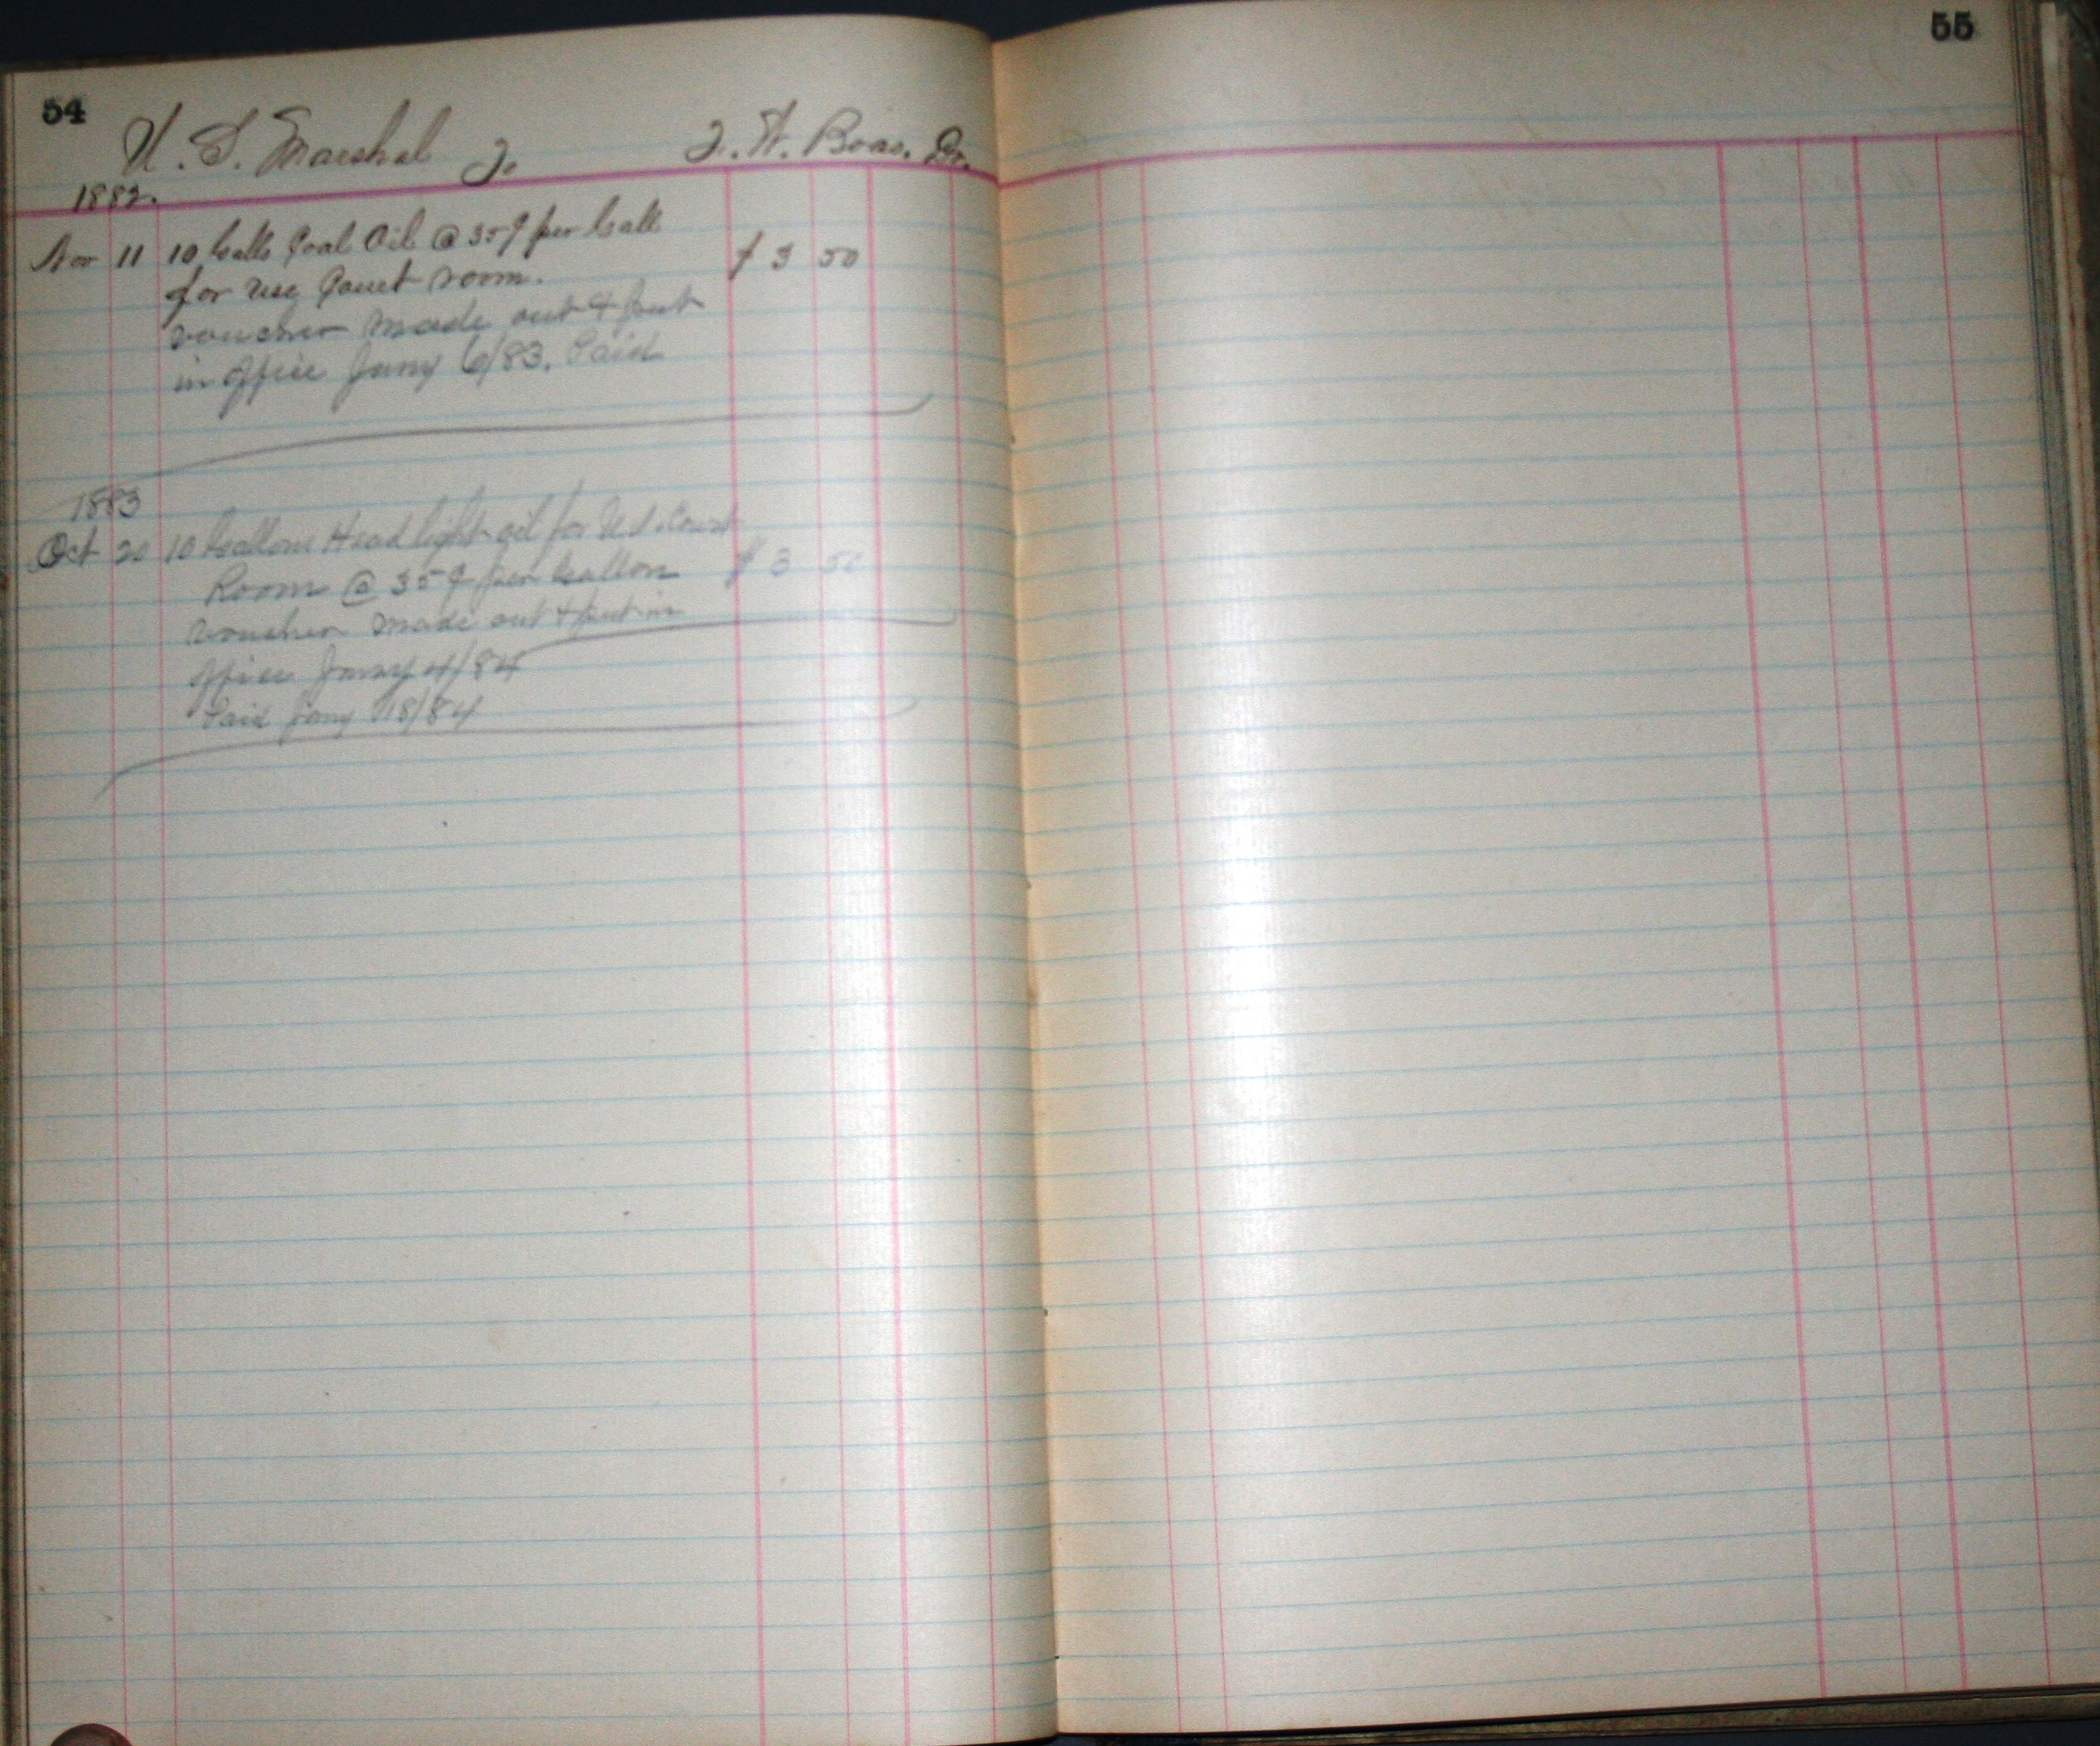 54
U. S. Marshal J. J. W. Boas. Dr.
1882.
Nov 11 10 Galls Coal Oil @ 35¢ per Gall
for use Court room. $ 3 50
voucher made out & put
in office Jany 6/83. Paid
1883
Oct 20 10 Gallons Head light oil for U.S. Court
Room @ 35¢ per Gallon $ 3 50
voucher made out & put in
office Jany 4/84
Paid Jany 18/84
55